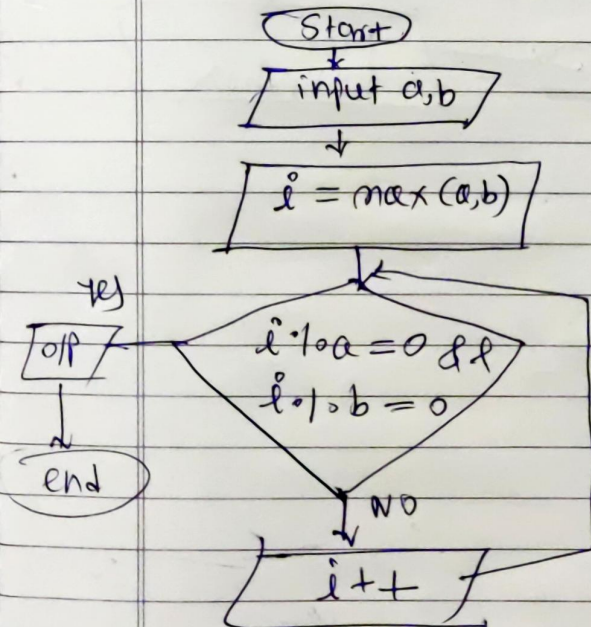 Start
input a,b
i = max (a,b)
Yes
i % a = 0 &&
i % b = 0
O/P
end
NO
i++